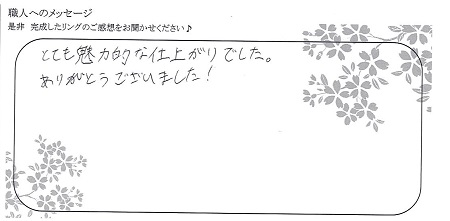 職人へのメッセージ
是非 完成したリングのご感想をお聞かせください♪
とても魅力的な仕上がりでした。
ありがとうございました!